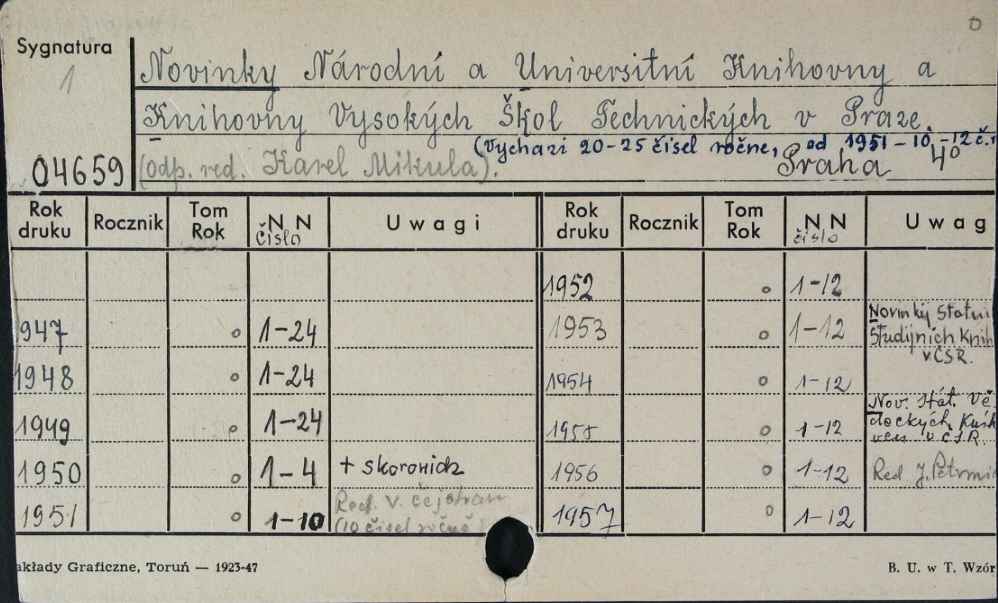 Sygnatura
1
04659
Novinky Národní a Universitní Knihovny a
Knihovny Vysokých Škol Technických v Praze.
(Vychazi 20-25 čísel ročne, od 1951-10,-12 č.r
(odp. red. Karel Mikula). Praha 4°
Rok druku Rocznik Tom Rok N N číslo Uwagi Rok druku Rocznik Tom Rok N N číslo Uwag
1952 o 1-12
947 o 1-24 1953 o 1-12 Novinky Statni
Studijních Knih
v ČSR.
1948 o 1-24 1954 o 1-12
1949 o 1-24 1955 o 1-12 Nov. Stát. Vě
deckých Knih
v ČSR.
1950 o 1-4 + skorowidz 1956 o 1-12 Red J.
1951 o 1-10 Red. V. 1957 o 1-12
(10 čísel ročně
akłady Graficzne, Toruń — 1923-47 B. U. w T. Wzór